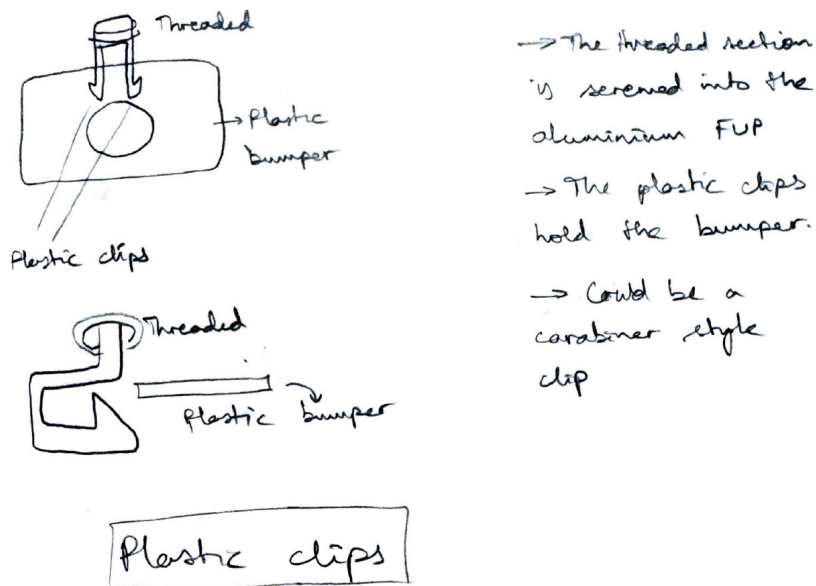 Threaded
→ Plastic
bumper
Plastic clips
Threaded
Plastic bumper
Plastic clips
→ The threaded section
is screwed into the
aluminium FUP
→ The plastic clips
hold the bumper.
→ Could be a
carabiner style
clip